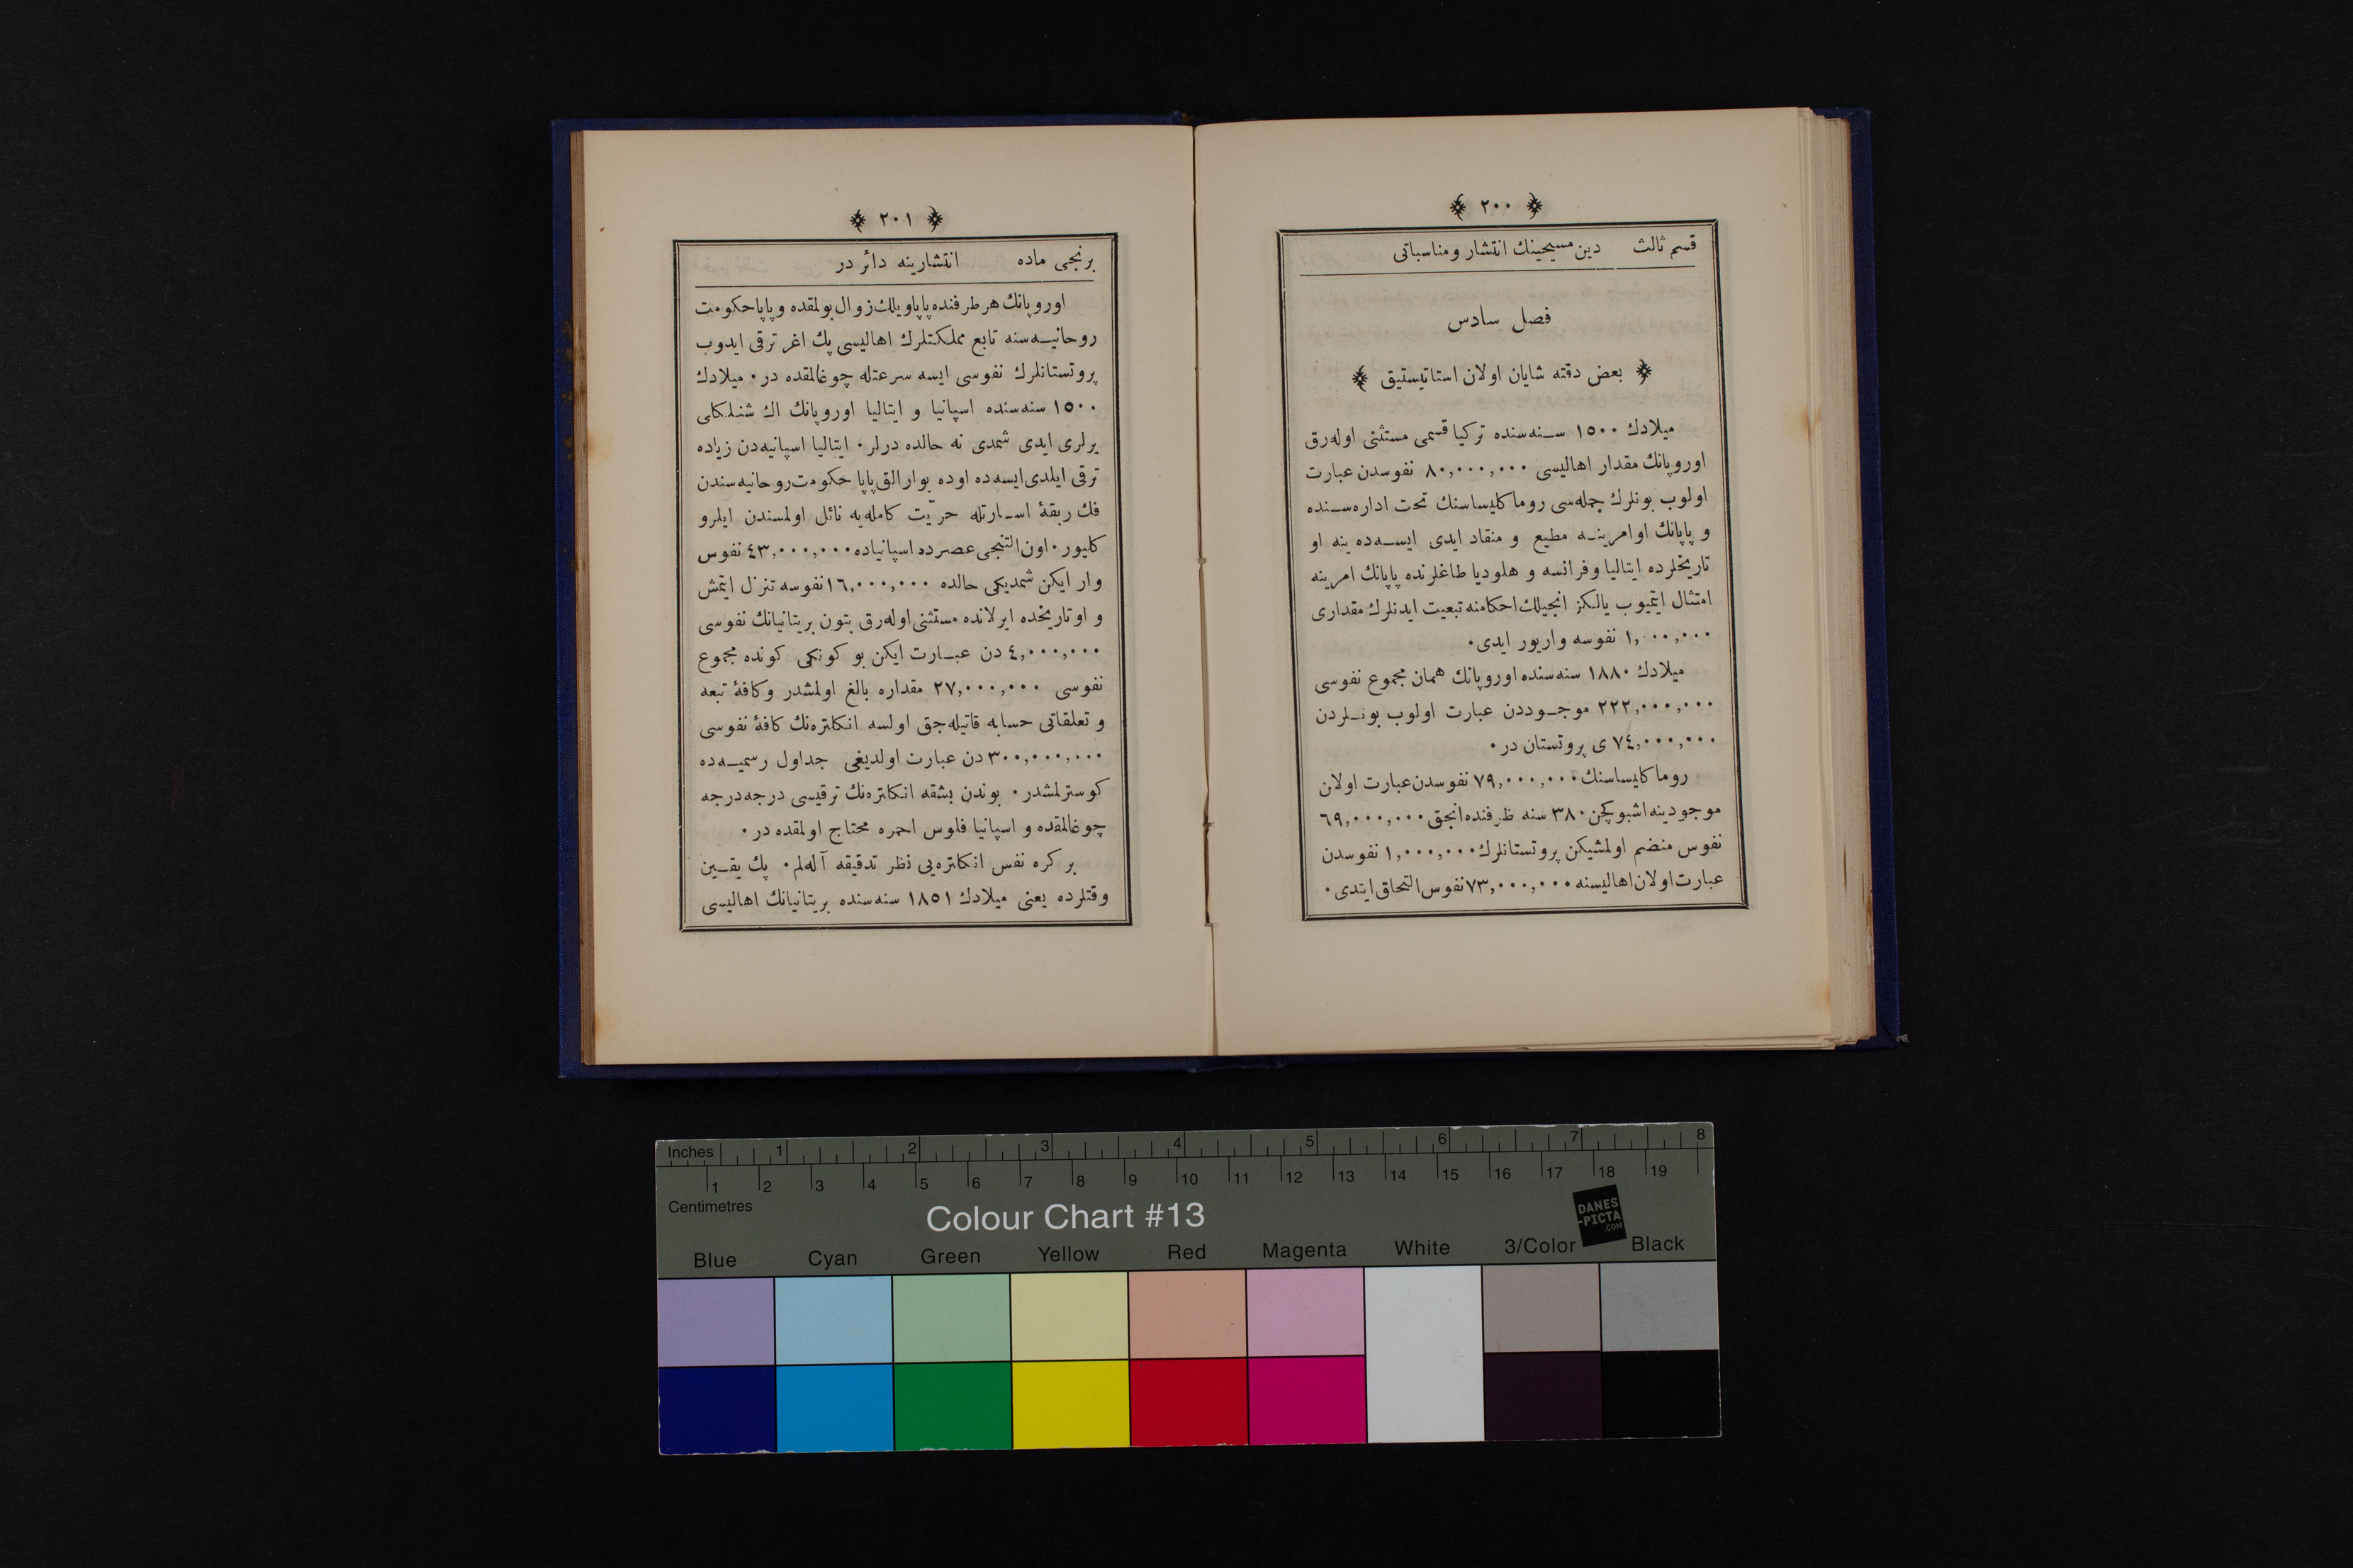 ﴿ ٢٠٠ ﴾
قسم ثالث دین مسیحینك انتشار و مناسباتی
فصل سادس
﴿ بعض دقته شایان اولان استاتیستیق ﴾
میلادك ١٥٠٠ سـنه‌سنده تركیا قسمی مستثنی اوله‌رق
اوروپانك مقدار اهالیسی ٨٠,٠٠٠,٠٠٠ نفوسدن عبارت
اولوب بونلرك جمله‌سی روما كلیساسنك تحت اداره‌سـنده
و پاپانك اوامرینـه مطیع و منقاد ایدی ایسـه‌ده ینه او
تاریخلرده ایتالیا و فرانسه و هلودیا طاغلرنده پاپانك امرینه
امتثال ایتمیوب یالكز انجیلك احكامنه تبعیت ایدنلرك مقداری
١,٠٠٠,٠٠٠ نفوسه واریور ایدی٠
میلادك ١٨٨٠ سنه‌سنده اوروپانك همان مجموع نفوسی
٢٢٢,٠٠٠,٠٠٠ موجـوددن عبارت اولوب بونـلردن
٧٤,٠٠٠,٠٠٠ ی پروتستان در٠
روما كلیساسنك ٧٩,٠٠٠,٠٠٠ نفوسدن عبارت اولان
موجودینه اشبو كچن ٣٨٠ سنه ظرفنده انجق ٦٩,٠٠٠,٠٠٠
نفوس منضم اولمشیكن پروتستانلرك ١,٠٠٠,٠٠٠ نفوسدن
عبارت اولان اهالیسنه ٧٣,٠٠٠,٠٠٠ نفوس التحاق ایتدی٠
﴿ ٢٠١ ﴾
برنجی ماده انتشارینه دائر در
اوروپانك هر طرفنده پاپاویلك زوال بولمقده و پاپا حكومت
روحانیـه‌سنه تابع مملكتلرك اهالیسی پك اغر ترقی ایدوب
پروتستانلرك نفوسی ایسه سرعتله چوغالمقده در٠ میلادك
١٥٠٠ سنه‌سنده اسپانیا و ایتالیا اوروپانك اك شنلكلی
یرلری ایدی شمدی نه حالده درلر٠ ایتالیا اسپانیه‌دن زیاده
ترقی ایلدی ایسه‌ده اوده بوارالق پاپا حكومت روحانیه‌سندن
فك ربقهٔ اسـارتله حرّیت كامله‌یه نائل اولمسندن ایلرو
كلیور٠ اون التنجی عصرده اسپانیاده ٤٣,٠٠٠,٠٠٠ نفوس
وار ایكن شمدیكی حالده ١٦,٠٠٠,٠٠٠ نفوسه تنزل ایتمش
و اوتاریخده ایرلانده مستثنی اوله‌رق بتون بریتانیانك نفوسی
٤,٠٠٠,٠٠٠ دن عبـارت ایكن بو كونكی كونده مجموع
نفوسی ٢٧,٠٠٠,٠٠٠ مقداره بالغ اولمشدر و كافهٔ تبعه
و تعلقاتی حسابه قاتیله‌جق اولسه انكلتره‌نك كافهٔ نفوسی
٣٠٠,٠٠٠,٠٠٠ دن عبارت اولدیغی جداول رسمیـه‌ده
كوسترلمشدر٠ بوندن بشقه انكلتره‌نك ترقیسی درجه درجه
چوغالمقده و اسپانیا فلوس احمره محتاج اولمقده در٠
بر كره نفس انكلتره‌یی نظر تدقیقه آله‌لم٠ پك یقـین
وقتلرده یعنی میلادك ١٨٥١ سنه‌سنده بریتانیانك اهالیسی
Inches 1 2 3 4 5 6 7 8
1 2 3 4 5 6 7 8 9 10 11 12 13 14 15 16 17 18 19
Centimetres
Colour Chart #13
DANES
-PICTA
.COM
Blue Cyan Green Yellow Red Magenta White 3/Color Black